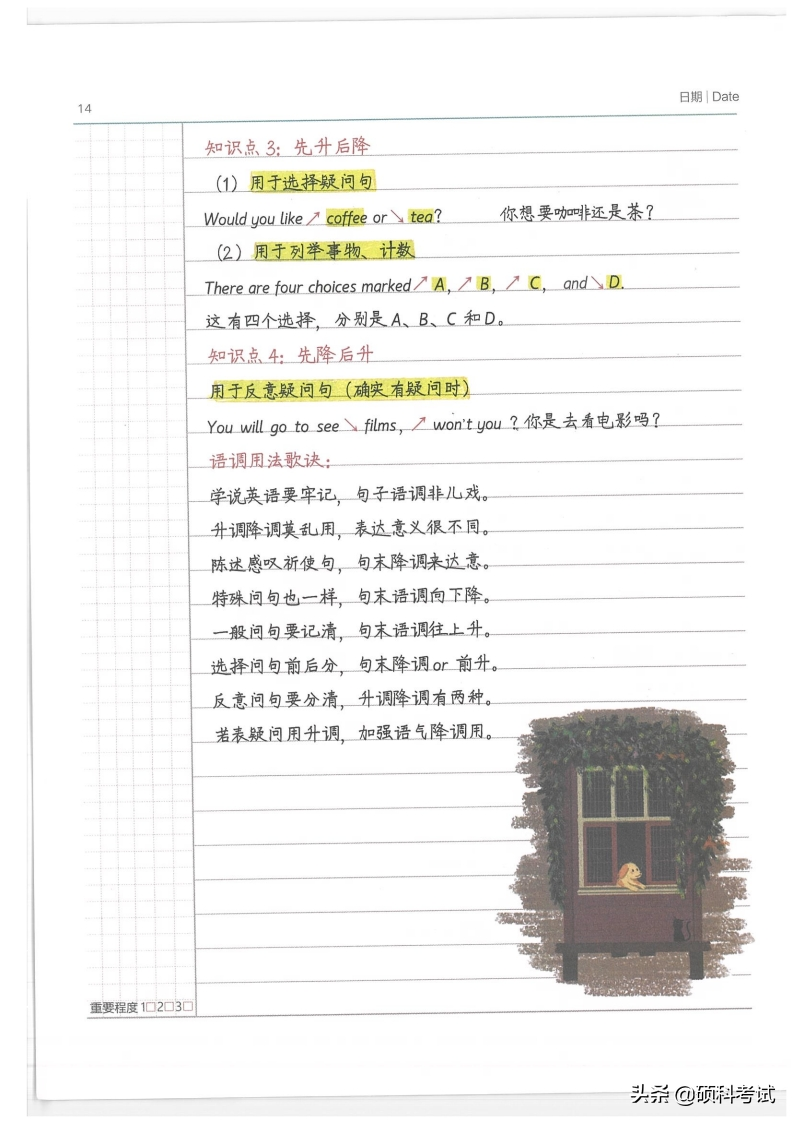 14
日期 | Date
知识点 3：先升后降
（1）用于选择疑问句
Would you like ↗ coffee or ↘ tea? 你想要咖啡还是茶？
（2）用于列举事物、计数
There are four choices marked ↗ A, ↗ B, ↗ C, and ↘ D.
这有四个选择，分别是 A、B、C 和 D。
知识点 4：先降后升
用于反意疑问句（确实有疑问时）
You will go to see ↘ films, ↗ won't you ? 你是去看电影吗？
语调用法歌诀：
学说英语要牢记，句子语调非儿戏。
升调降调莫乱用，表达意义很不同。
陈述感叹祈使句，句末降调来达意。
特殊问句也一样，句末语调向下降。
一般问句要记清，句末语调往上升。
选择问句前后分，句末降调 or 前升。
反意问句要分清，升调降调有两种。
若表疑问用升调，加强语气降调用。
重要程度 1□2□3□
头条 @硕科考试